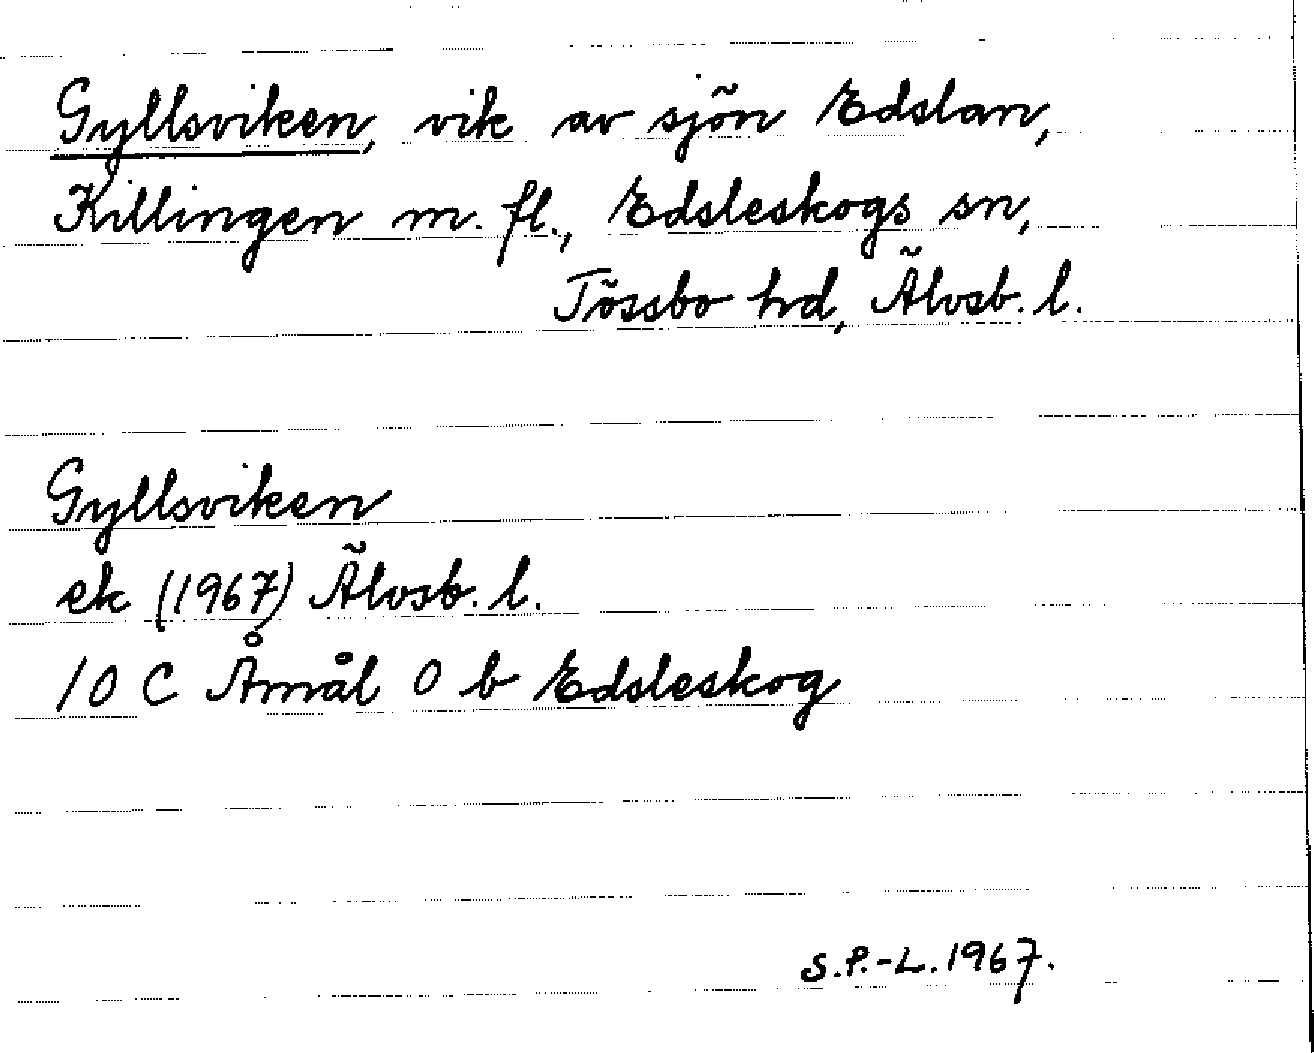 Gyllsviken, vik av sjön Edslan,
Killingen m. fl., Edsleskogs sn,
Tössbo hd, Älvsb. l.
Gyllsviken
ek (1967) Älvsb. l.
10 C Åmål 0 b Edsleskog
S.P.-L. 1967.